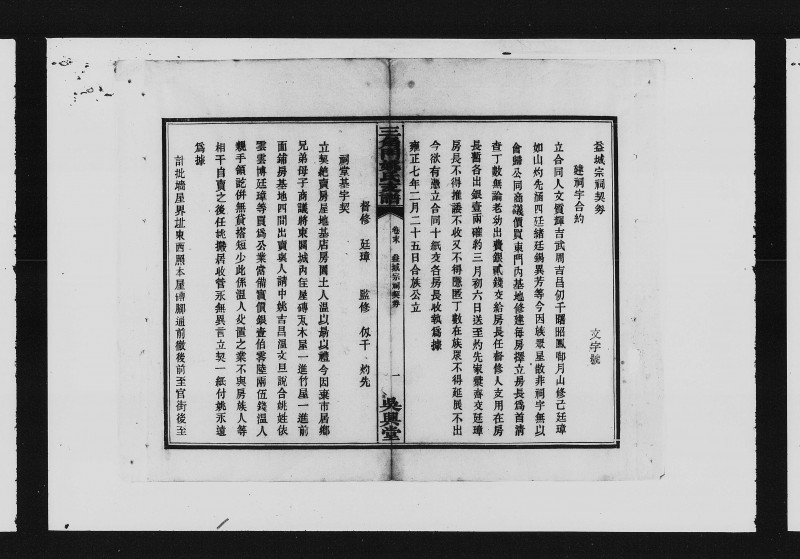 益城宗祠契券
建祠宇合約 文字號
立合同人文質輝吉武周吉昌仞千曙昭鳳卿月山修己廷璋
如山灼先涵四廷緒廷錫異芳等今因族眾星散非祠宇無以
會歸公同商議價買東門內基地修建每房擇立房長為首清
查丁數無論老幼出費銀貳錢交給房長任督修人支用在房
長舊各出銀壹兩確約三月初六日送至灼先家彙齊交廷璋
房長不得推諉不收又不得隱匿丁數在族眾不得延展不出
今欲有憑立合同十紙交各房長收執為據
雍正七年二月二十五日合族公立
督修 廷璋 監修 仞千 灼先
三 門姚氏家譜
卷末 益城宗祠契券 一
吳興堂
祠堂基字契
立契絕賣房屋地基店房園土人溫以易以禮今因棄市居鄉
兄弟母子商議將東關城內住屋磚瓦木屋一進竹屋一進前
面鋪房基地四間出賣與人請中姚吉昌溫文旦說合姚姓依
雲雲博廷璋等買為公業當備實價銀壹伯零陸兩伍錢溫人
親手領訖併無貨搭短少此係溫人處置之業不與房族人等
相干自賣之後任姚搬居收管永無異言立契一紙付姚永遠
為據
計批墻屋界址東西照本屋磚腳通前徹後前至官街後至